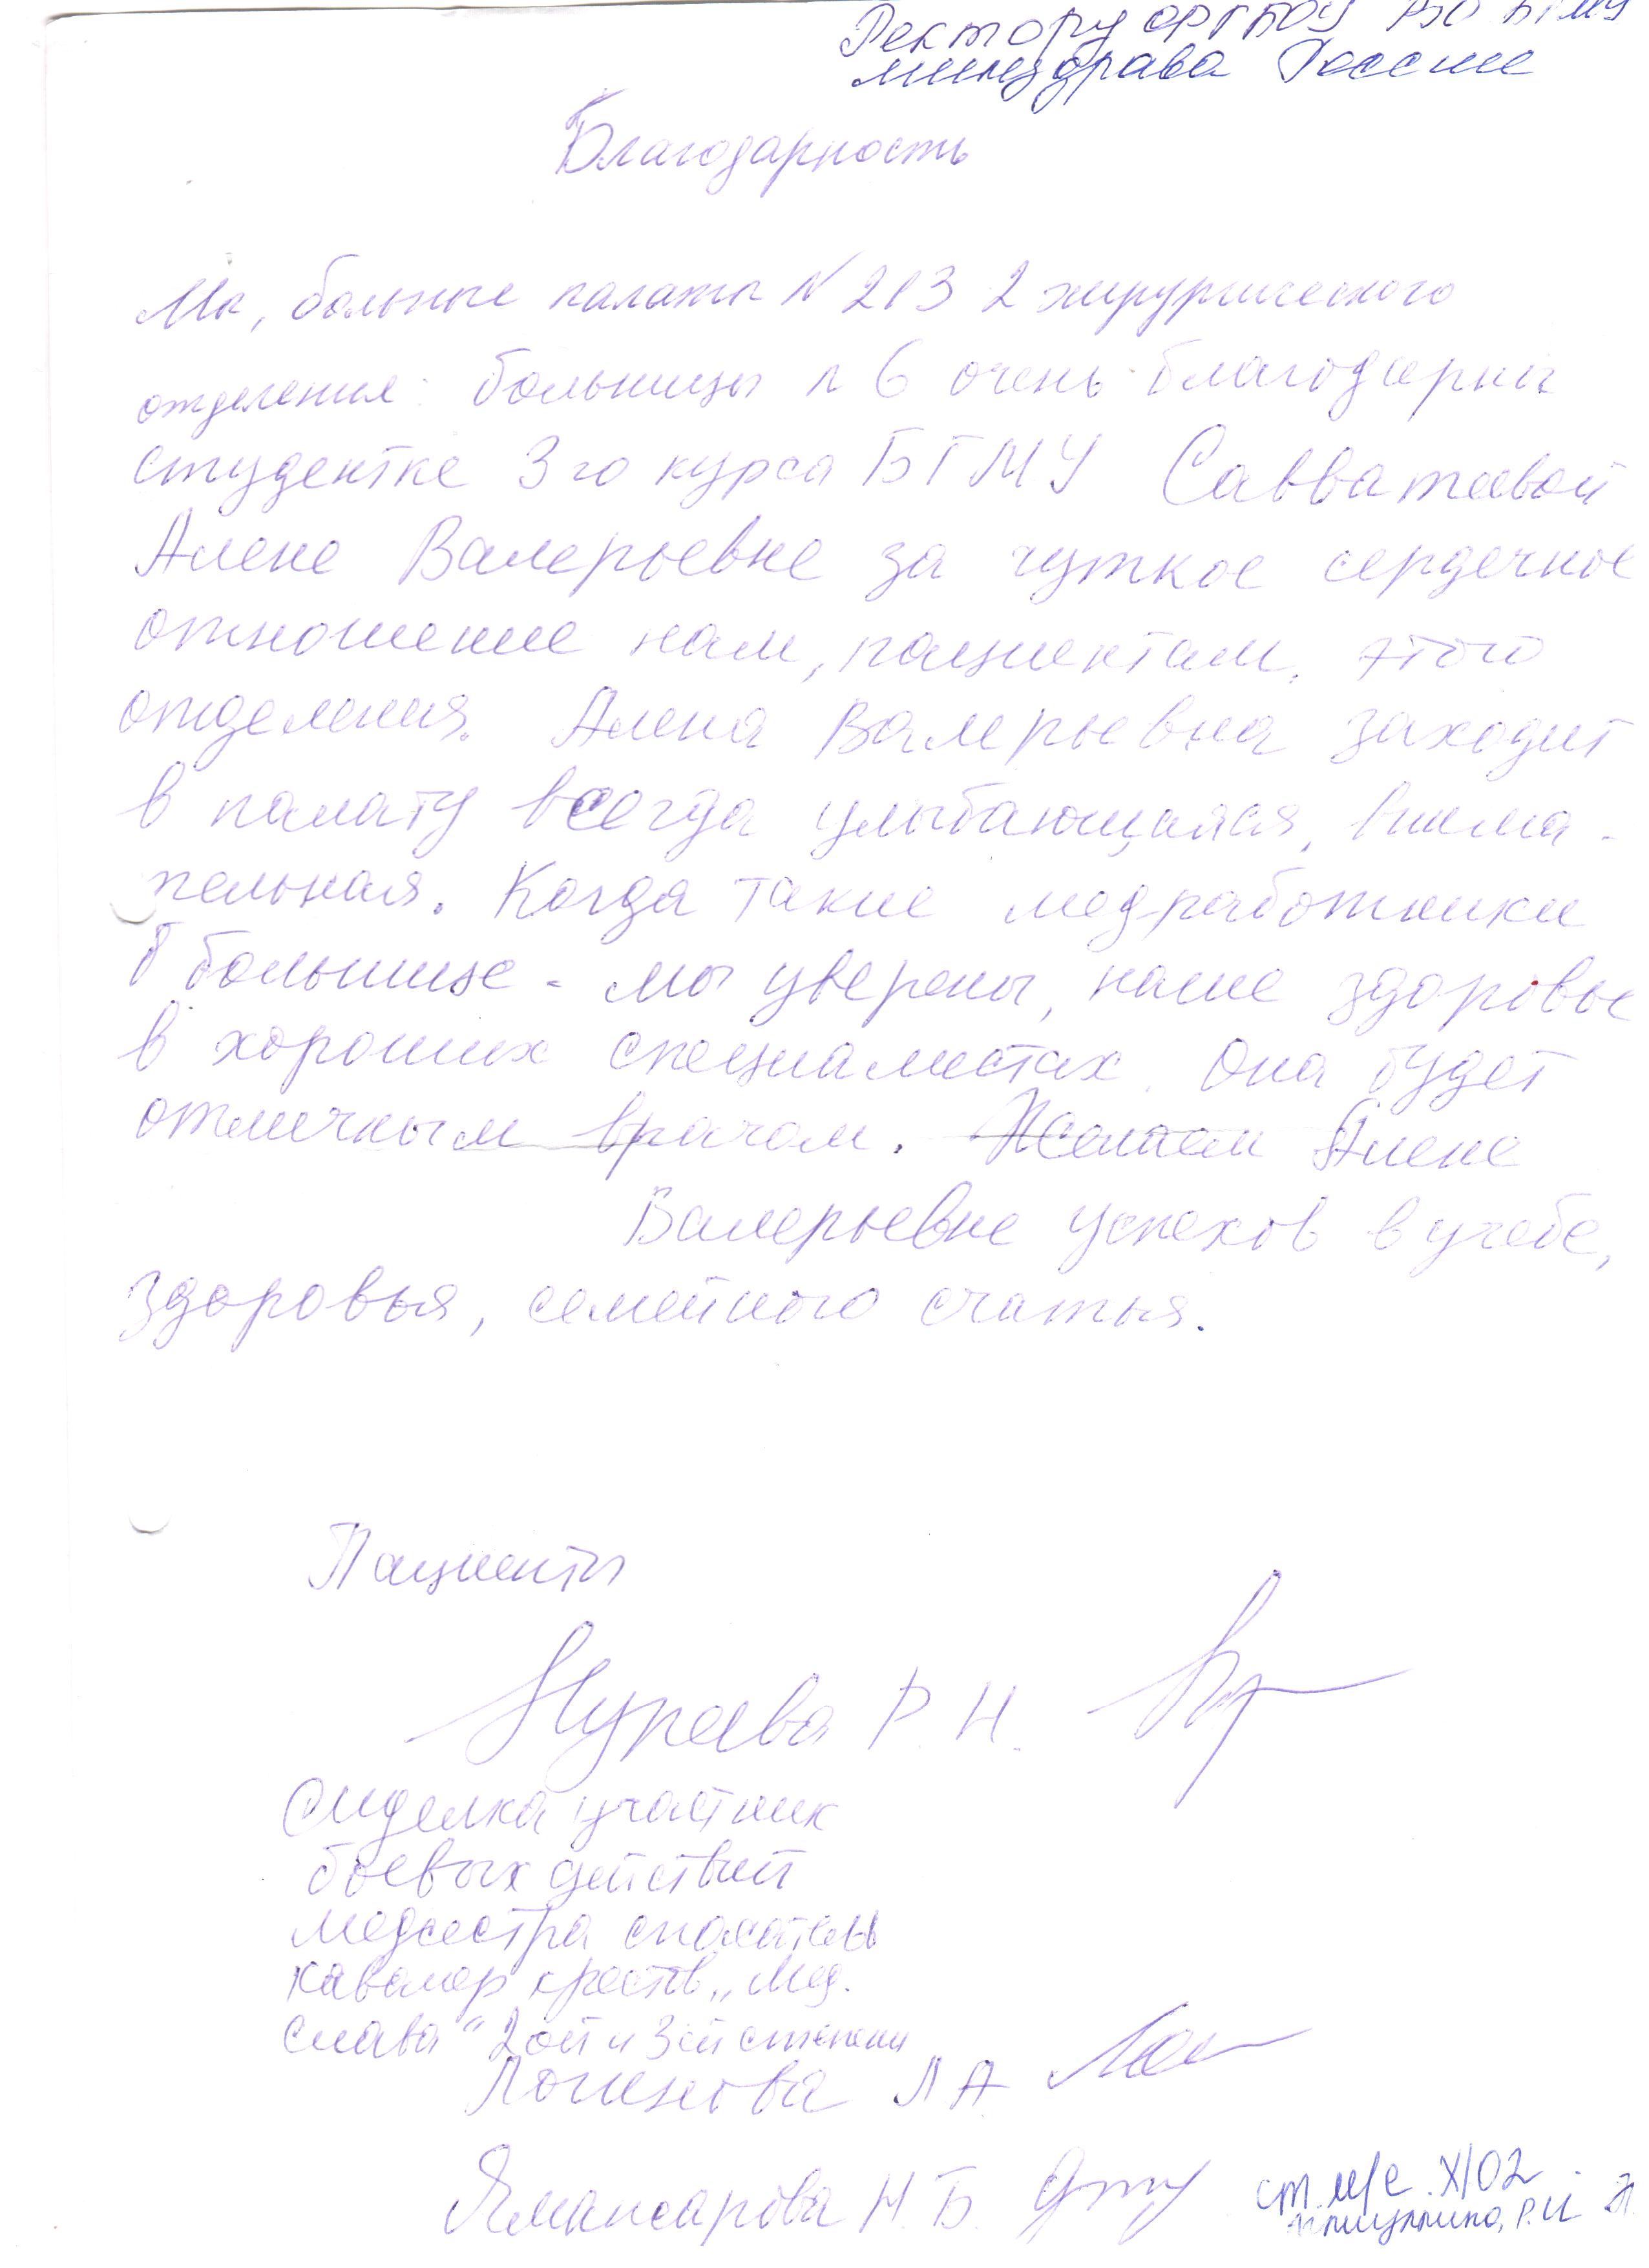 Ректору ФГБОУ ВО БГМУ
минздрава России
Благодарность
Мы, больные палаты N 213 2 хирургического
отделения: больницы n 6 очень благодарны
студентке 3го курса БГМУ Савватеевой
Алене Валерьевне за чуткое сердечное
отношение нам, пациентам. этого
отделения. Алена Валерьевна заходит
в палату всегда улыбающаяся, внима-
тельная. Когда такие медработники
в больнице - мы уверены, наше здоровье
в хороших специалистах. Она будет
отличным врачом. Желаем Алене
Валерьевне успехов в учебе,
здоровья, семейного счастья.
Пациенты
Нураева Р. Н.
Сиделка участник
боевых действий
медсестра спасатель
кавалер крестов „Мед.
слава" 2ой и 3ей степени
Логинова Л А
Ямансарова Н. Б.
ст. м/с Х/О2
Р.И